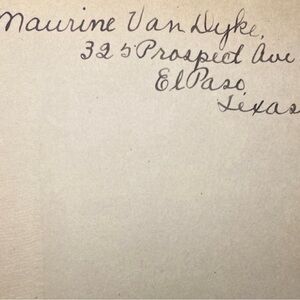 Maurine Van Dyke,
325 Prospect Ave
El Paso
Texas